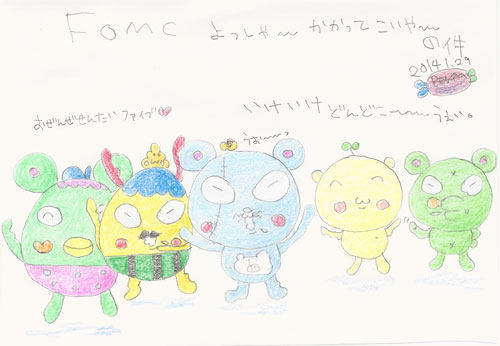 FOMC よっしゃ～ かかってこいや～
の件
2014.1.29
いけいけどんどこ～～うぇい。
おぜんぜせんたい ファイブ
うおーーっ